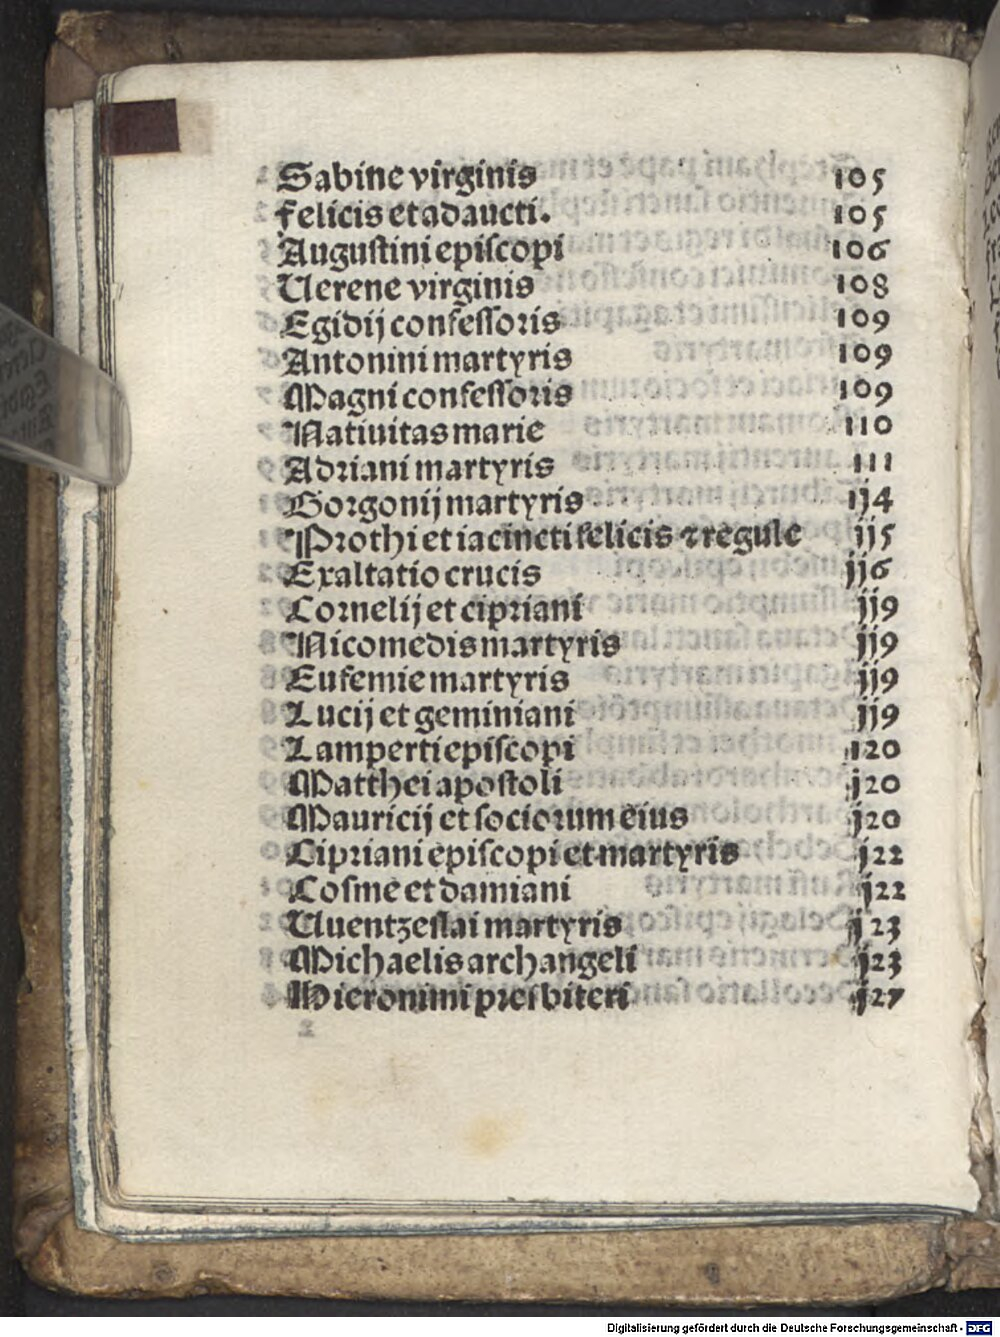 Sabine virginis 105
Felicis et adaucti. 105
Auguſtini epiſcopi 106
Uerene virginis 108
Egidij confeſſoris 109
Antonini martyris 109
Magni confeſſoris 109
Natiuitas marie 110
Adriani martyris 111
Gorgonij martyris 114
Prothi et iacincti felicis ⁊ regule 115
Exaltatio crucis 116
Cornelij et cipriani 119
Nicomedis martyris 119
Eufemie martyris 119
Lucij et geminiani 119
Lamperti epiſcopi 120
Matthei apoſtoli 120
Mauricij et ſociorum eius 120
Cipriani epiſcopi et martyris 122
Coſme et damiani 122
Uuentzeſlai martyris 123
Michaelis archangeli 123
Hieronimi preſbiteri 127
Digitalisierung gefördert durch die Deutsche Forschungsgemeinschaft - DFG